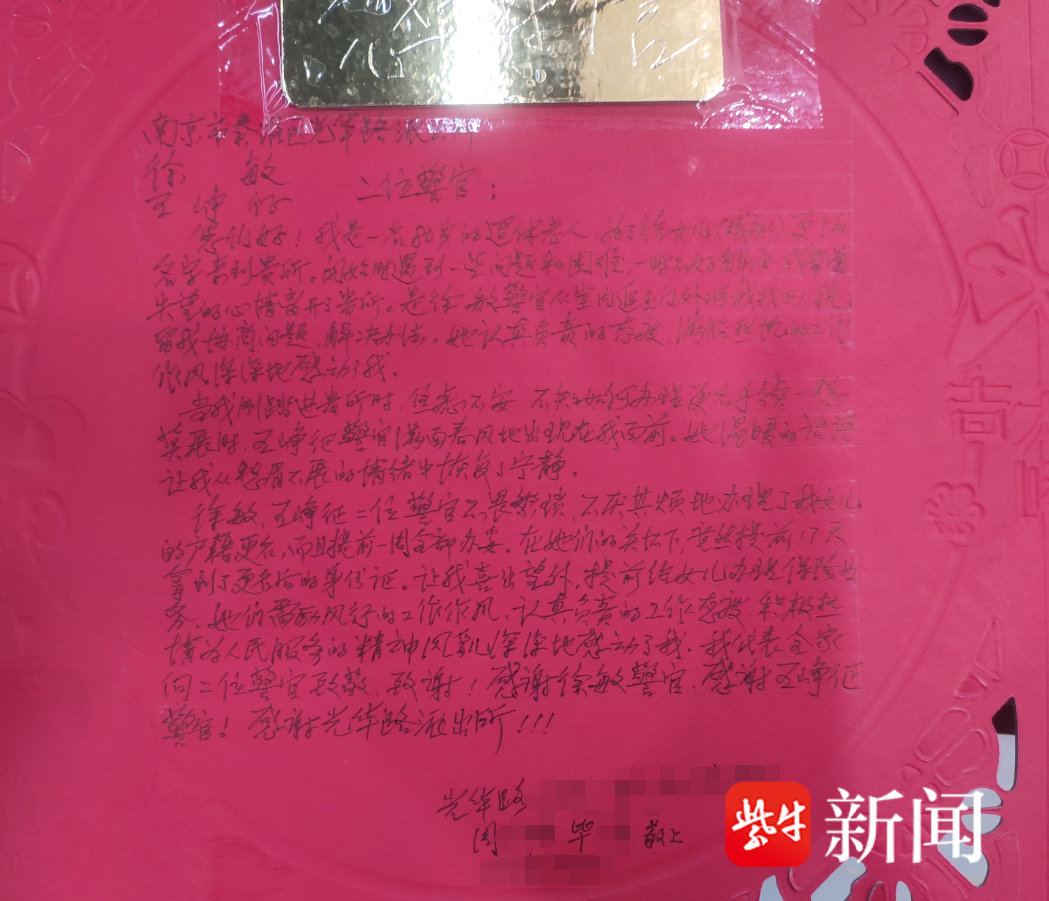 南京市秦淮区光华路派出所
徐 敏
王峥征 二位警官：
您们好！我是一名80岁的退休老人，为了给女儿更改
名字来到贵所。开始时遇到一些问题和困难，一时不好解决，我带着
失望的心情离开了贵所。是徐敏警官从室内追出门外将我找回，挽
留我协商问题，解决办法。她认真负责的态度，满腔热忱的工作
作风深深地感动了我。
当我刚踏进贵所时，忐忑不安，不知如何办理更名手续，一筹
莫展时，王峥征警官满面春风地出现在我面前。她温暖的话语
让我从愁眉不展的情绪中恢复了宁静。
徐敏、王峥征二位警官不畏繁琐，不厌其烦地办理了我女儿
的户籍更名，而且提前一周全部办妥。在她们的关怀下，竟然提前17天
拿到了更名后的身份证。让我喜出望外，提前给女儿办理保险业
务。她们雷励风行的工作作风、认真负责的工作态度、积极热
情为人民服务的精神风貌深深地感动了我。我代表全家
向二位警官致敬、致谢！感谢徐敏警官，感谢王峥征
警官！感谢光华路派出所！！！
光华路
周 毕 敬上
紫牛 新闻